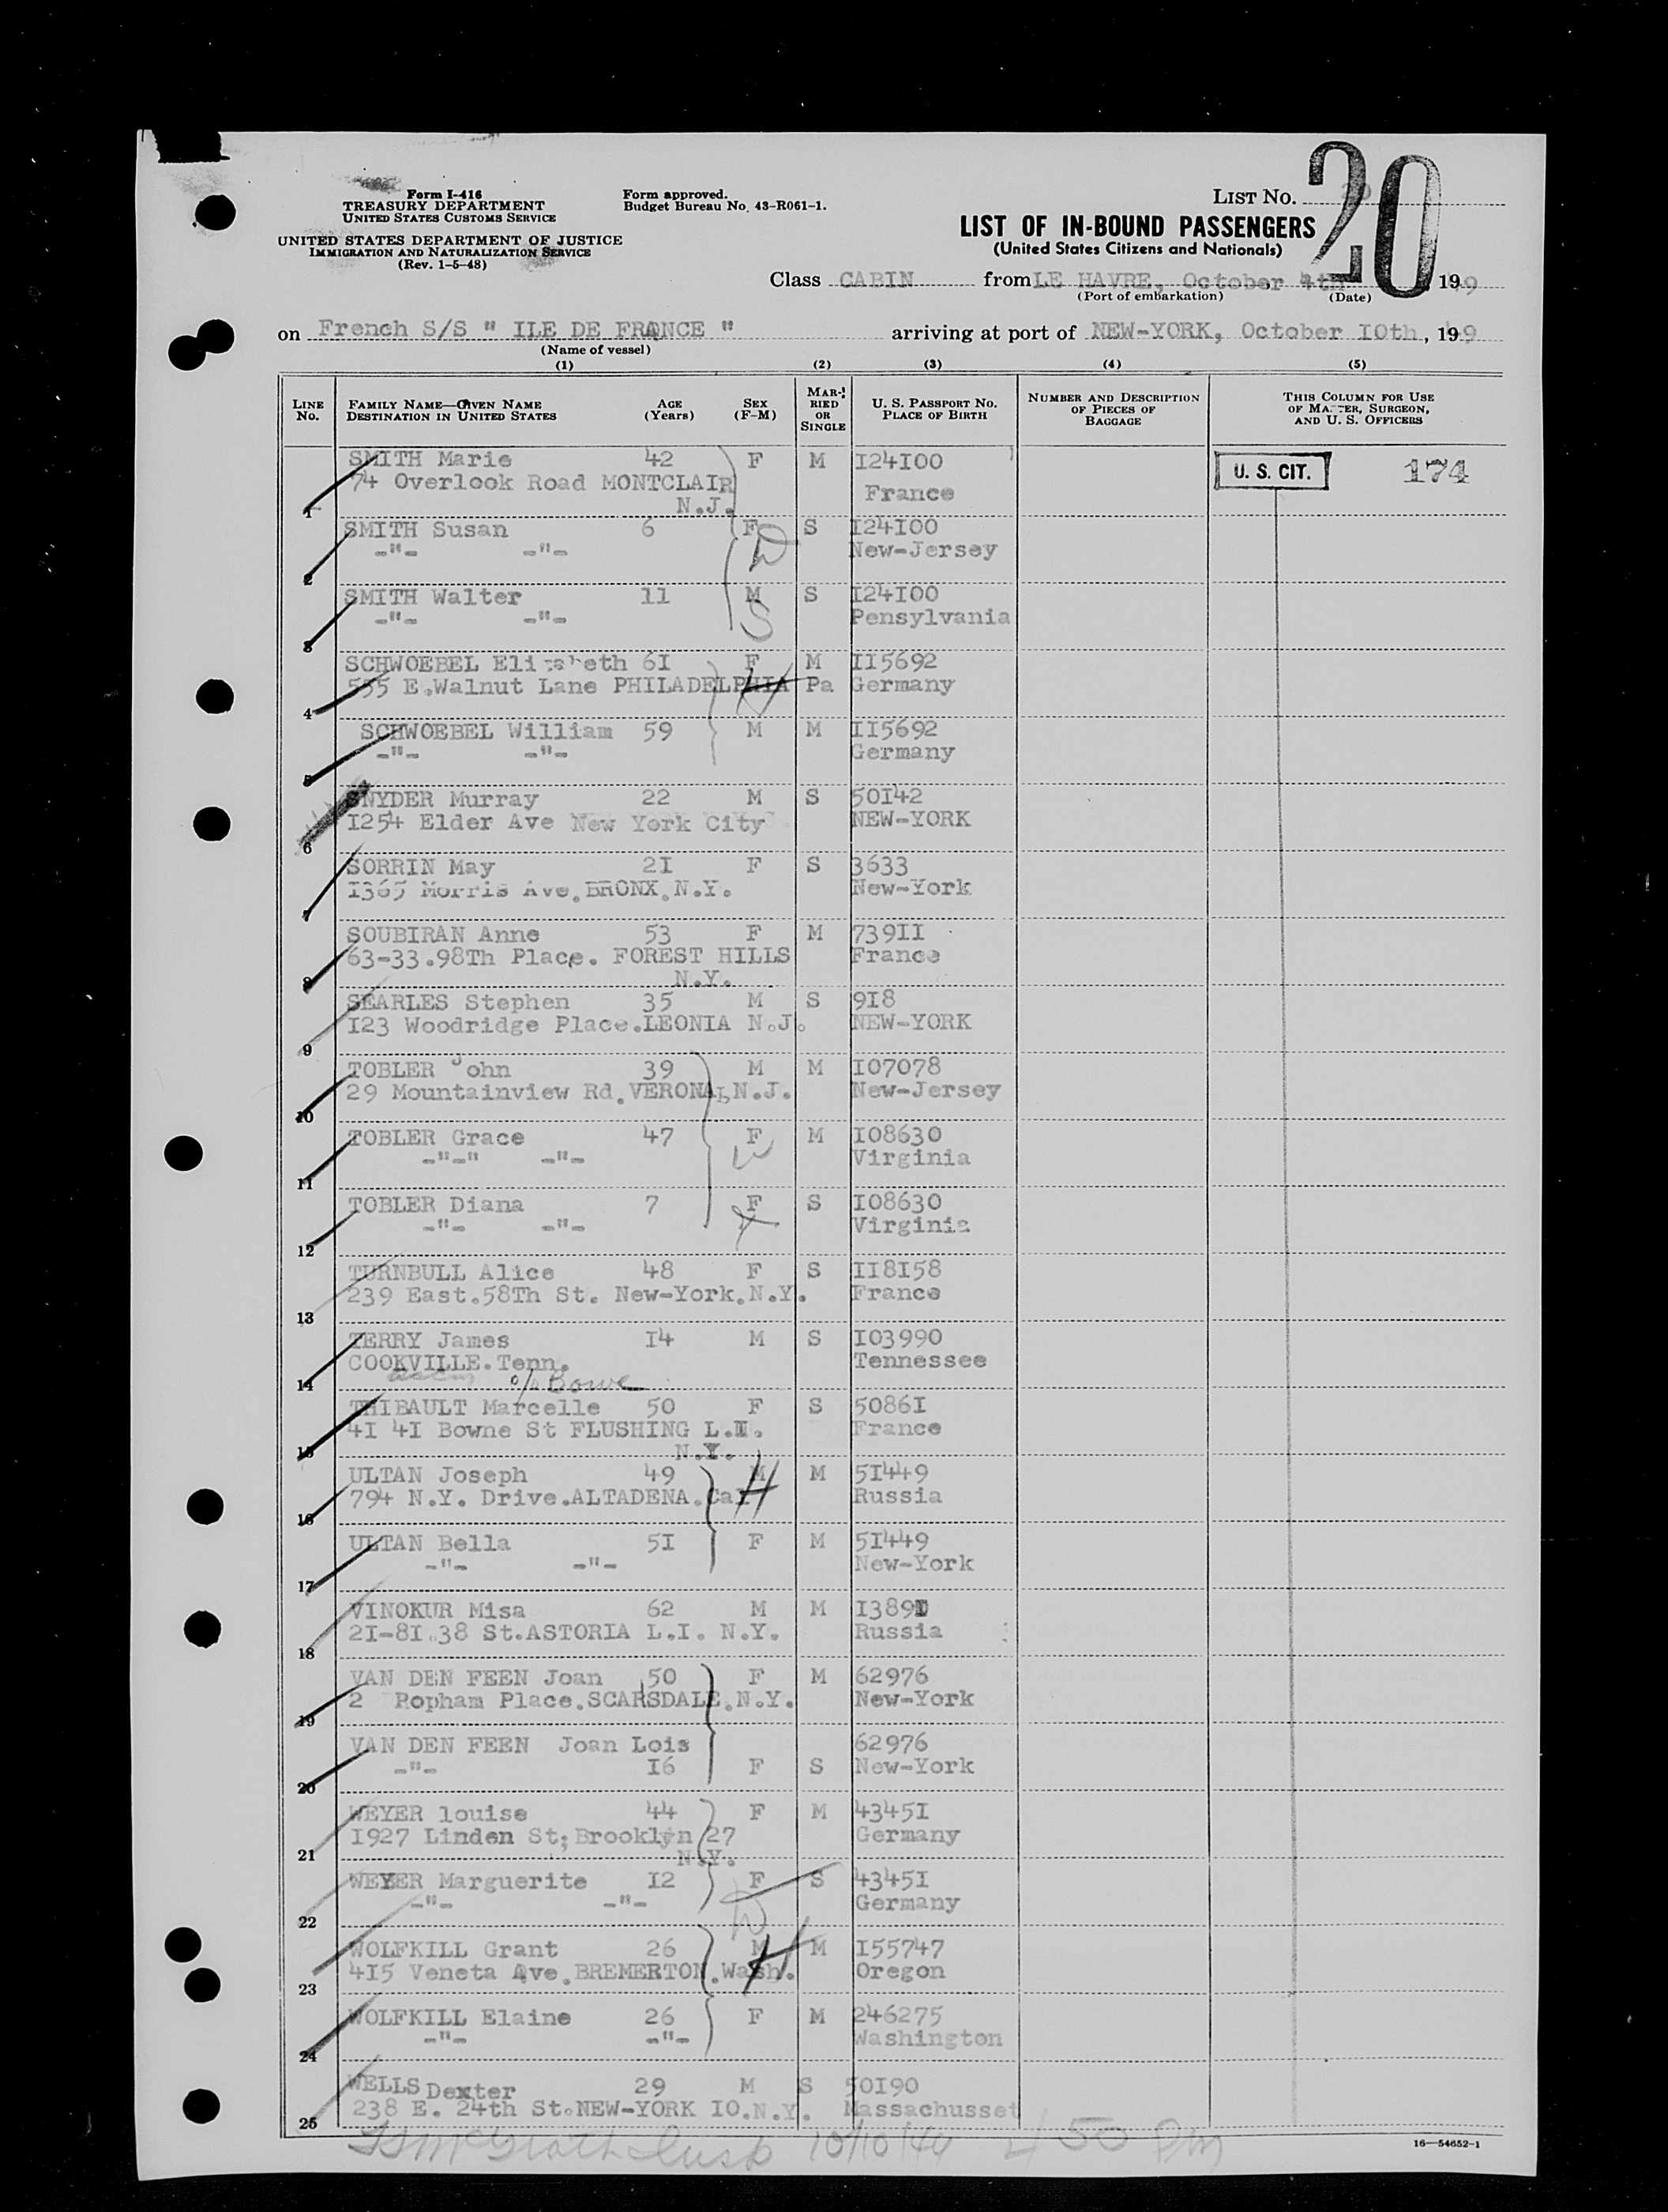 Form I-416
TREASURY DEPARTMENT
UNITED STATES CUSTOMS SERVICE
UNITED STATES DEPARTMENT OF JUSTICE
IMMIGRATION AND NATURALIZATION SERVICE
(Rev. 1-5-48)
Form approved.
Budget Bureau No. 43-R061-1.
LIST NO. 20
LIST OF IN-BOUND PASSENGERS
(United States Citizens and Nationals)
Class CABIN from LE HAVRE, October 4th 1949
(Port of embarkation) (Date)
on French S/S " ILE DE FRANCE " arriving at port of NEW-YORK, October IOth, 1949
(Name of vessel)
(1) (2) (3) (4) (5)
LINE NO. FAMILY NAME—GIVEN NAME DESTINATION IN UNITED STATES AGE (Years) SEX (F-M) MARRIED OR SINGLE U. S. PASSPORT NO. PLACE OF BIRTH NUMBER AND DESCRIPTION OF PIECES OF BAGGAGE THIS COLUMN FOR USE OF MASTER, SURGEON, AND U. S. OFFICERS
SMITH Marie 42 F M I24I00 U. S. CIT. 174
74 Overlook Road MONTCLAIR France
1 N.J.
SMITH Susan 6 F S I24I00
-"- -"- New-Jersey
2
SMITH Walter 11 M S I24I00
-"- -"- Pensylvania
3
SCHWOEBEL Elizabeth 6I F M II5692
555 E.Walnut Lane PHILADELPHIA Pa Germany
4
SCHWOEBEL William 59 M M II5692
-"- -"- Germany
5
SNYDER Murray 22 M S 50I42
I254 Elder Ave New York City NEW-YORK
6
SORRIN May 2I F S 3633
I365 Morris Ave.BRONX.N.Y. New-York
7
SOUBIRAN Anne 53 F M 739II
63-33.98Th Place. FOREST HILLS France
8 N.Y.
SEARLES Stephen 35 M S 9I8
I23 Woodridge Place.LEONIA N.J. NEW-YORK
9
TOBLER John 39 M M I07078
29 Mountainview Rd.VERONA, N.J. New-Jersey
10
TOBLER Grace 47 F M I08630
-"-" -"- Virginia
11
TOBLER Diana 7 F S I08630
-"- -"- Virginia
12
TURNBULL Alice 48 F S II8I58
239 East.58Th St. New-York.N.Y. France
13
TERRY James I4 M S I03990
COOKVILLE.Tenn. Tennessee
14 % Bowe
THIBAULT Marcelle 50 F S 5086I
4I 4I Bowne St FLUSHING L.I. France
15 N.Y.
ULTAN Joseph 49 M M 5I449
794 N.Y. Drive.ALTADENA.Cal Russia
16
ULTAN Bella 5I F M 5I449
-"- -"- New-York
17
VINOKUR Misa 62 M M
2I-8I.38 St.ASTORIA L.I. N.Y. Russia
18
VAN DEN FEEN Joan 50 F M 62976
2 Popham Place.SCARSDALE.N.Y. New-York
19
VAN DEN FEEN Joan Lois 62976
-"- I6 F S New-York
20
WEYER louise 44 F M 4345I
I927 Linden St; Brooklyn 27 Germany
21 N.Y.
WEYER Marguerite I2 F S 4345I
-"- -"- Germany
22
WOLFKILL Grant 26 M M I55747
4I5 Veneta Ave.BREMERTON.Wash. Oregon
23
WOLFKILL Elaine 26 F M 246275
-"- -"- Washington
24
WELLS Dexter 29 M S 50I90
238 E. 24th St.NEW-YORK IO.N.Y. Massachusset
25
10/10/49 4 50 Pm
16—54652-1